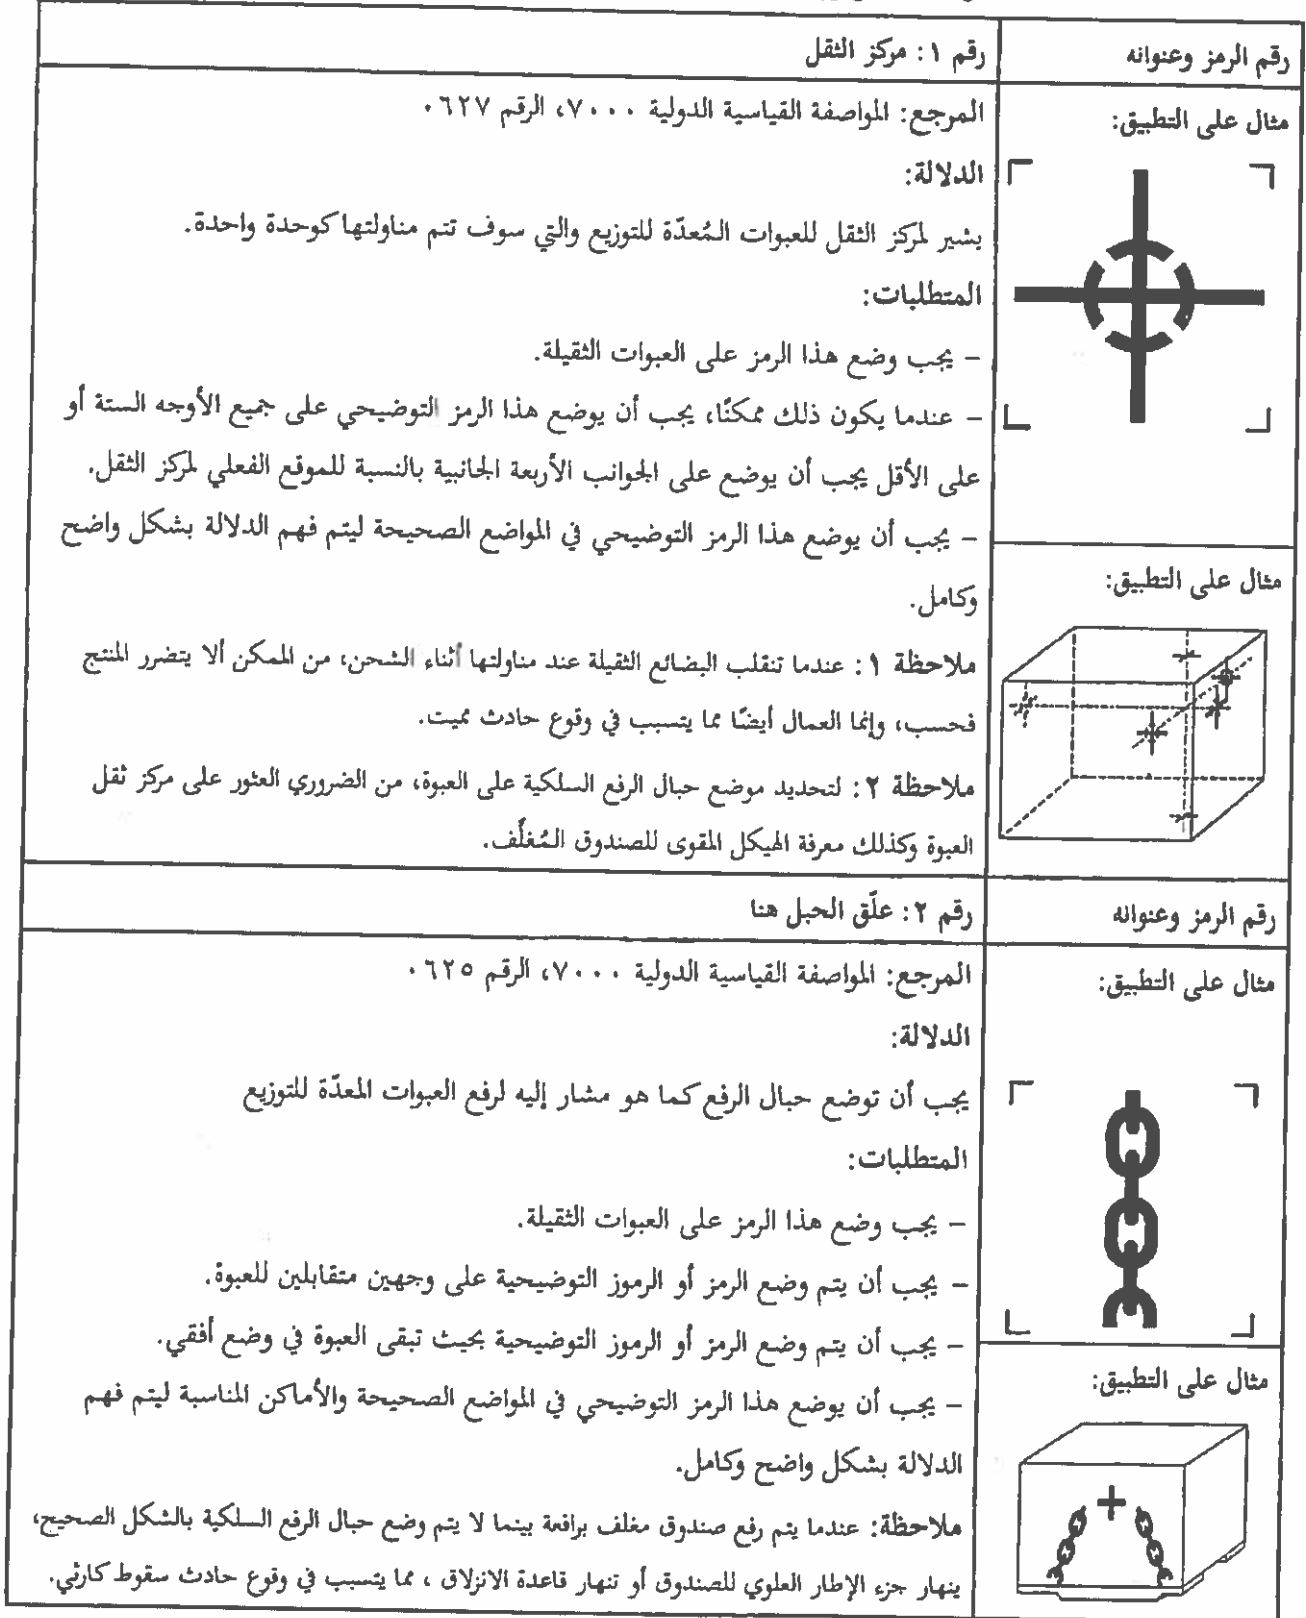 رقم الرمز وعنوانه
رقم ١: مركز الثقل
مثال على التطبيق:
المرجع: المواصفة القياسية الدولية ٧٠٠٠، الرقم ٠٦٢٧
الدلالة:
يشير لمركز الثقل للعبوات المُعدّة للتوزيع والتي سوف تتم مناولتها كوحدة واحدة.
المتطلبات:
– يجب وضع هذا الرمز على العبوات الثقيلة.
– عندما يكون ذلك ممكنًا، يجب أن يوضع هذا الرمز التوضيحي على جميع الأوجه الستة أو
على الأقل يجب أن يوضع على الجوانب الأربعة الجانبية بالنسبة للموقع الفعلي لمركز الثقل.
– يجب أن يوضع هذا الرمز التوضيحي في المواضع الصحيحة ليتم فهم الدلالة بشكل واضح
وكامل.
مثال على التطبيق:
ملاحظة ١: عندما تنقلب البضائع الثقيلة عند مناولتها أثناء الشحن، من الممكن ألا يتضرر المنتج
فحسب، وإنما العمال أيضًا مما يتسبب في وقوع حادث مميت.
ملاحظة ٢: لتحديد موضع حبال الرفع السلكية على العبوة، من الضروري العثور على مركز ثقل
العبوة وكذلك معرفة الهيكل المقوى للصندوق المُغلَّف.
رقم الرمز وعنوانه
رقم ٢: علّق الحبل هنا
مثال على التطبيق:
المرجع: المواصفة القياسية الدولية ٧٠٠٠، الرقم ٠٦٢٥
الدلالة:
يجب أن توضع حبال الرفع كما هو مشار إليه لرفع العبوات المعدّة للتوزيع
المتطلبات:
– يجب وضع هذا الرمز على العبوات الثقيلة.
– يجب أن يتم وضع الرمز أو الرموز التوضيحية على وجهين متقابلين للعبوة.
– يجب أن يتم وضع الرمز أو الرموز التوضيحية بحيث تبقى العبوة في وضع أفقي.
– يجب أن يوضع هذا الرمز التوضيحي في المواضع الصحيحة والأماكن المناسبة ليتم فهم
الدلالة بشكل واضح وكامل.
مثال على التطبيق:
ملاحظة: عندما يتم رفع صندوق مغلف برافعة بينما لا يتم وضع حبال الرفع السلكية بالشكل الصحيح،
ينهار جزء الإطار العلوي للصندوق أو تنهار قاعدة الانزلاق ، مما يتسبب في وقوع حادث سقوط كارثي.